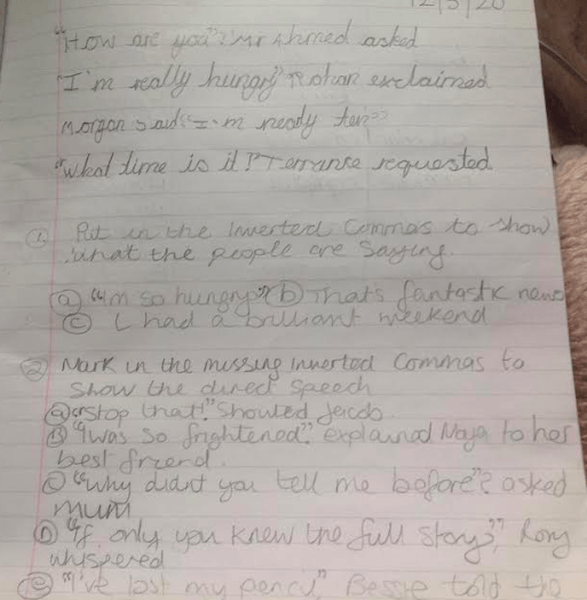 12/5/20
"How are you"? Mr Ahmed asked
"I'm really hungry" Rohan exclaimed
Morgan said "I'm nearly ten"
"What time is it?" Terranse requested.
① Put in the inverted commas to show
what the people are saying.
ⓐ "I'm so hungry" ⓑ Thats fantastic news
ⓒ I had a brilliant weekend
② Mark in the missing inverted commas to
show the direct speech
ⓐ "stop that!" Shouted Jacob.
ⓑ "I was so frightened." explained Naja to her
best friend.
ⓒ "Why didnt you tell me before"? asked
mum
ⓓ "If only you knew the full story," Rory
whispered
ⓔ "I've lost my pencil," Bessie told the